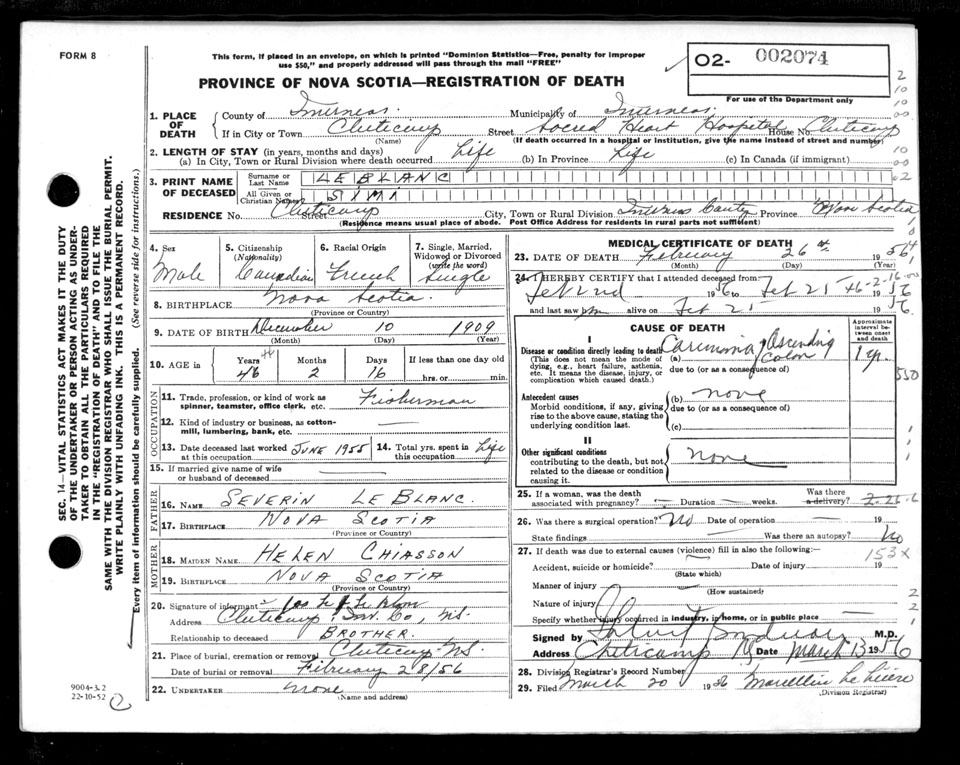 FORM 8
This form, if placed in an envelope, on which is printed "Dominion Statistics—Free, penalty for improper
use $50," and properly addressed will pass through the mail "FREE"
O2- 002074
PROVINCE OF NOVA SCOTIA—REGISTRATION OF DEATH
For use of the Department only
1. PLACE OF DEATH
County of Inverness. Municipality of Inverness.
If in City or Town Cheticamp Street Sacred Heart Hospital House No. Cheticamp
(Name) (If death occurred in a hospital or institution, give the name instead of street and number)
2. LENGTH OF STAY (in years, months and days)
(a) In City, Town or Rural Division where death occurred Life (b) In Province Life (c) In Canada (if immigrant)
3. PRINT NAME OF DECEASED
Surname or Last Name LE BLANC
All Given or Christian Names SIMI
RESIDENCE No. Street Cheticamp City, Town or Rural Division Inverness County Province Nova Scotia
(Residence means usual place of abode. Post Office Address for residents in rural parts not sufficient)
4. Sex Male
5. Citizenship (Nationality) Canadian
6. Racial Origin French
7. Single, Married, Widowed or Divorced (write the word) Single
8. BIRTHPLACE Nova Scotia
(Province or Country)
9. DATE OF BIRTH December 10 1909
(Month) (Day) (Year)
10. AGE in Years 46 Months 2 Days 16 If less than one day old hrs. or min.
OCCUPATION
11. Trade, profession, or kind of work as spinner, teamster, office clerk, etc. Fisherman
12. Kind of industry or business, as cotton-mill, lumbering, bank, etc.
13. Date deceased last worked at this occupation JUNE 1955
14. Total yrs. spent in this occupation Life
15. If married give name of wife or husband of deceased
FATHER
16. NAME SEVERIN LE BLANC.
17. BIRTHPLACE NOVA SCOTIA
(Province or Country)
MOTHER
18. MAIDEN NAME HELEN CHIASSON
19. BIRTHPLACE NOVA SCOTIA
(Province or Country)
20. Signature of informant
Address Cheticamp, Inv. Co, NS.
Relationship to deceased BROTHER.
21. Place of burial, cremation or removal Cheticamp NS.
Date of burial or removal February 28/56
22. UNDERTAKER None
(Name and address)
MEDICAL CERTIFICATE OF DEATH
23. DATE OF DEATH February 26th 1956
(Month) (Day) (Year)
24. I HEREBY CERTIFY that I attended deceased from
Feb 2nd 1956 to Feb 25 1956
and last saw him alive on Feb 25 1956.
46-2-16-00
CAUSE OF DEATH
Approximate interval between onset and death
I
Disease or condition directly leading to death
(This does not mean the mode of dying, e.g., heart failure, asthenia, etc. It means the disease, injury, or complication which caused death.)
(a) Carcinoma Ascending Colon 1 yr.
due to (or as a consequence of)
550
Antecedent causes
Morbid conditions, if any, giving rise to the above cause, stating the underlying condition last.
(b) none
due to (or as a consequence of)
(c)
II
Other significant conditions
contributing to the death, but not related to the disease or condition causing it.
none
25. If a woman, was the death associated with pregnancy? Duration weeks. Was there a delivery? 2-26-6
26. Was there a surgical operation? No Date of operation 19
State findings Was there an autopsy? No
27. If death was due to external causes (violence) fill in also the following:—
153X
Accident, suicide or homicide? Date of injury 19
(State which)
Manner of injury
(How sustained)
Nature of injury
Specify whether injury occurred in industry, in home, or in public place
Signed by M.D.
Address Cheticamp NS Date March 13 1956
28. Division Registrar's Record Number
29. Filed March 20 1956
(Division Registrar)
SEC. 14—VITAL STATISTICS ACT MAKES IT THE DUTY
OF THE UNDERTAKER OR PERSON ACTING AS UNDER-
TAKER TO OBTAIN ALL THE PARTICULARS REQUIRED
IN THE "REGISTRATION OF DEATH" AND TO FILE THE
SAME WITH THE DIVISION REGISTRAR WHO SHALL ISSUE THE BURIAL PERMIT.
WRITE PLAINLY WITH UNFADING INK. THIS IS A PERMANENT RECORD.
Every item of information should be carefully supplied. (See reverse side for instructions.)
9004-3.2
22-10-52